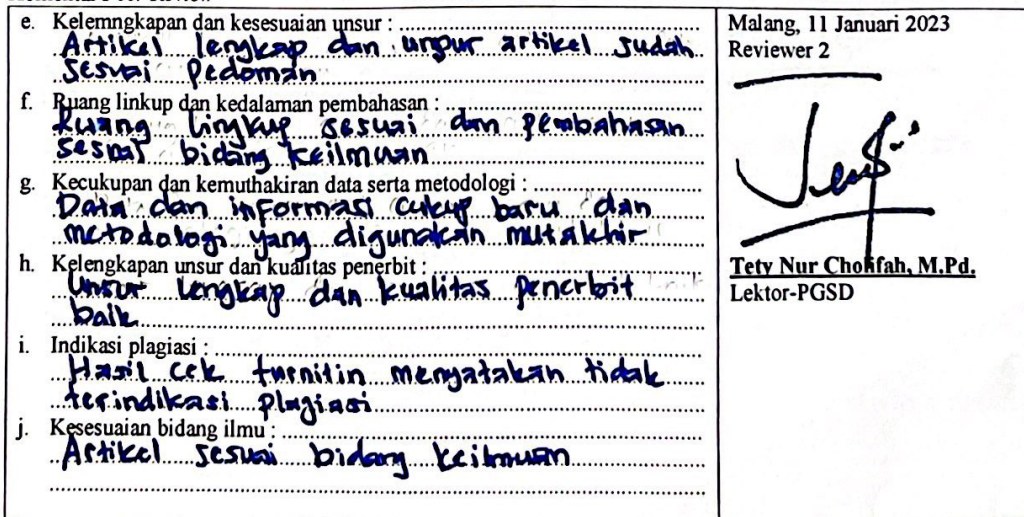 e. Kelemngkapan dan kesesuaian unsur :
Artikel lengkap dan unsur artikel sudah
sesuai pedoman
f. Ruang linkup dan kedalaman pembahasan :
Ruang lingkup sesuai dan pembahasan
sesuai bidang keilmuan
g. Kecukupan dan kemuthakiran data serta metodologi :
Data dan informasi cukup baru dan
metodologi yang digunakan mutakhir
h. Kelengkapan unsur dan kualitas penerbit :
Unsur lengkap dan kualitas penerbit
baik
i. Indikasi plagiasi :
Hasil cek turnitin menyatakan tidak
terindikasi plagiasi
j. Kesesuaian bidang ilmu :
Artikel sesuai bidang keilmuan
Malang, 11 Januari 2023
Reviewer 2
Tety Nur Cholifah, M.Pd.
Lektor-PGSD